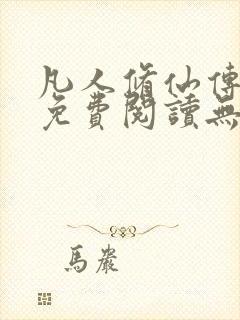 凡人脩仙傳
免費閱讀無
馬巖